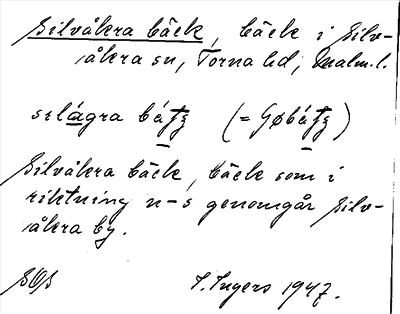 Silvåkra bäck, bäck i Silv-
åkra sn, Torna hd, Malm.l.
selågra bátʒ (= Gøbátʒ)
Silvåkra bäck, bäck som i
riktning n-s genomgår Silv-
åkra by.
I. Ingers 1947.